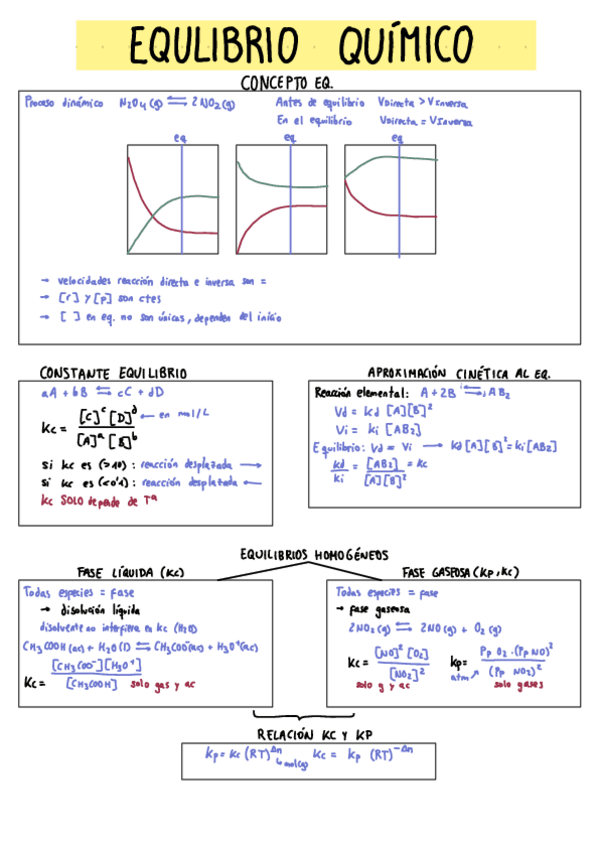 EQULIBRIO QUÍMICO
CONCEPTO EQ.
Proceso dinámico N₂O₄(g) ⇌ 2NO₂(g)
Antes de equilibrio VDirecta > VInversa
En el equilibrio VDirecta = VInversa
eq eq eq
→ velocidades reacción directa e inversa son =
→ [r] y [p] son ctes
→ [ ] en eq. no son únicas, dependen del inicio
CONSTANTE EQUILIBRIO
aA + bB ⇌ cC + dD
Kc = [C]ᶜ[D]ᵈ / [A]ᵃ[B]ᵇ ← en mol/L
si kc es (>10) : reacción desplazada →
si kc es (<0'1) : reacción desplazada ←
kc SOLO depende de Tª
APROXIMACIÓN CINÉTICA AL EQ.
Reacción elemental: A + 2B ⇌ AB₂
Vd = Kd [A][B]²
Vi = ki [AB₂]
Equilibrio: Vd = Vi → kd[A][B]² = ki[AB₂]
kd / ki = [AB₂] / [A][B]² = kc
EQUILIBRIOS HOMOGÉNEOS
FASE LÍQUIDA (Kc)
Todas especies = fase
→ disolución líquida
disolvente no interfiera en kc (H₂O)
CH₃COOH (ac) + H₂O(l) ⇌ CH₃COO⁻(ac) + H₃O⁺(ac)
Kc = [CH₃COO⁻][H₃O⁺] / [CH₃COOH] solo gas y ac
FASE GASEOSA (KP, KC)
Todas especies = fase
→ fase gaseosa
2NO₂(g) ⇌ 2NO(g) + O₂(g)
Kc = [NO]²[O₂] / [NO₂]²
solo g y ac
kp = Pp O₂ · (Pp NO)² / (Pp NO₂)²
atm ↗ solo gases
RELACIÓN KC Y KP
Kp = Kc (RT)^Δn Kc = Kp (RT)^-Δn
↳ mol(g)